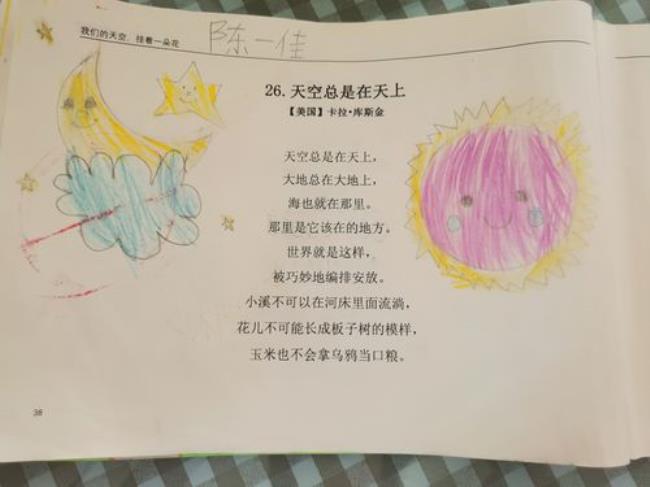 我们的天空，挂着一朵花
陈一佳
26. 天空总是在天上
【美国】卡拉·库斯金
天空总是在天上，
大地总在大地上，
海也就在那里。
那里是它该在的地方。
世界就是这样，
被巧妙地编排安放。
小溪不可以在河床里面流淌，
花儿不可能长成板子树的模样，
玉米也不会拿乌鸦当口粮。
38